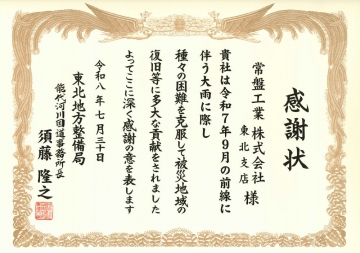 感謝状
常盤工業 株式会社
東北支店 様
貴社は令和7年9月の前線に
伴う大雨に際し
種々の困難を克服して被災地域の
復旧等に多大な貢献をされました
よってここに深く感謝の意を表します
令和八年七月三十日
東北地方整備局
能代河川国道事務所長
須藤隆之